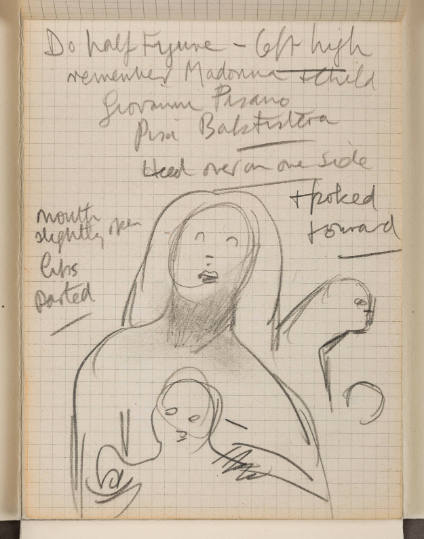 Do half Figure – left high
remember Madonna + child
Giovanni Pisano
Pisa Battistera
Head over on one side
+ poked
forward
mouth
slightly open
lips
parted